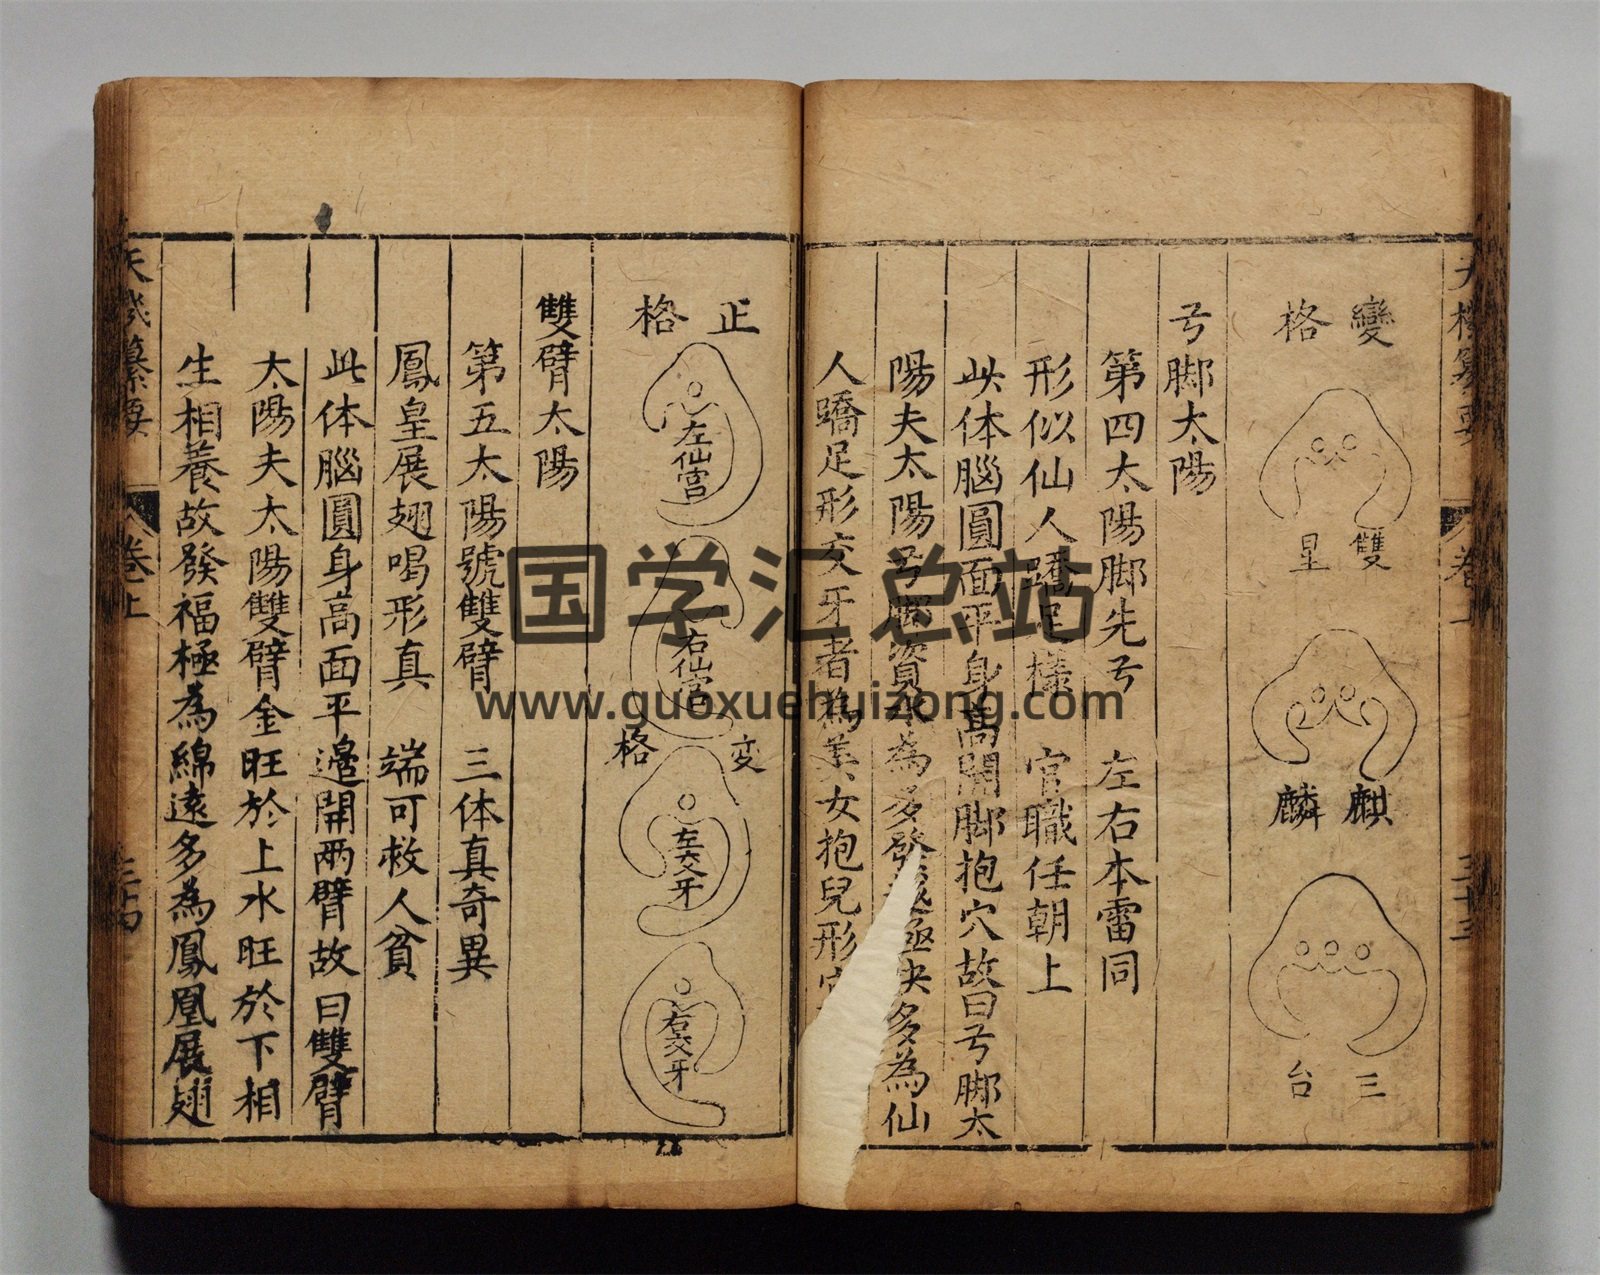 變格
雙星
麒麟
三台
弓脚太陽
第四太陽脚先弓　左右本雷同
形似仙人蹻足樣　官職任朝上
此体腦圓面平身高開脚抱穴故曰弓脚太
陽夫太陽弓脚資水為多發越極快多為仙
人蹻足形交牙者為美女抱兒形
天機纂要
卷上
三十三
正格
左仙宮
右仙宮
変格
左交牙
右交牙
雙臂太陽
第五太陽號雙臂　三体真奇異
鳳皇展翅喝形真　端可救人貧
此体腦圓身高面平邉開兩臂故曰雙臂
太陽夫太陽雙臂金旺於上水旺於下相
生相養故發福極為綿遠多為鳳凰展翅
天機纂要
卷上
三十四
国学汇总站
www.guoxuehuizong.com